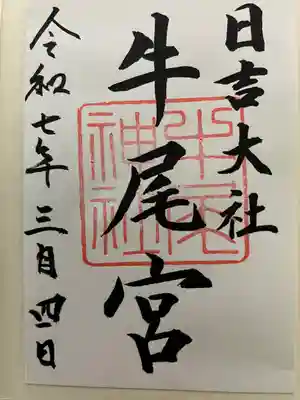 日吉大社
牛尾宮
牛尾
神社
令和七年三月四日